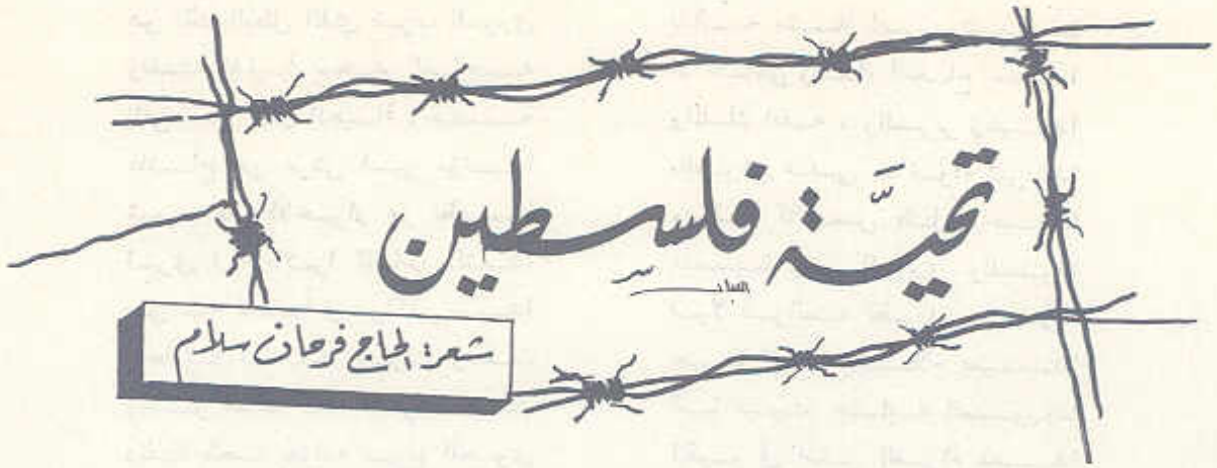 تحيَّة فلسطين
شعر: الحاج فرحان سلام